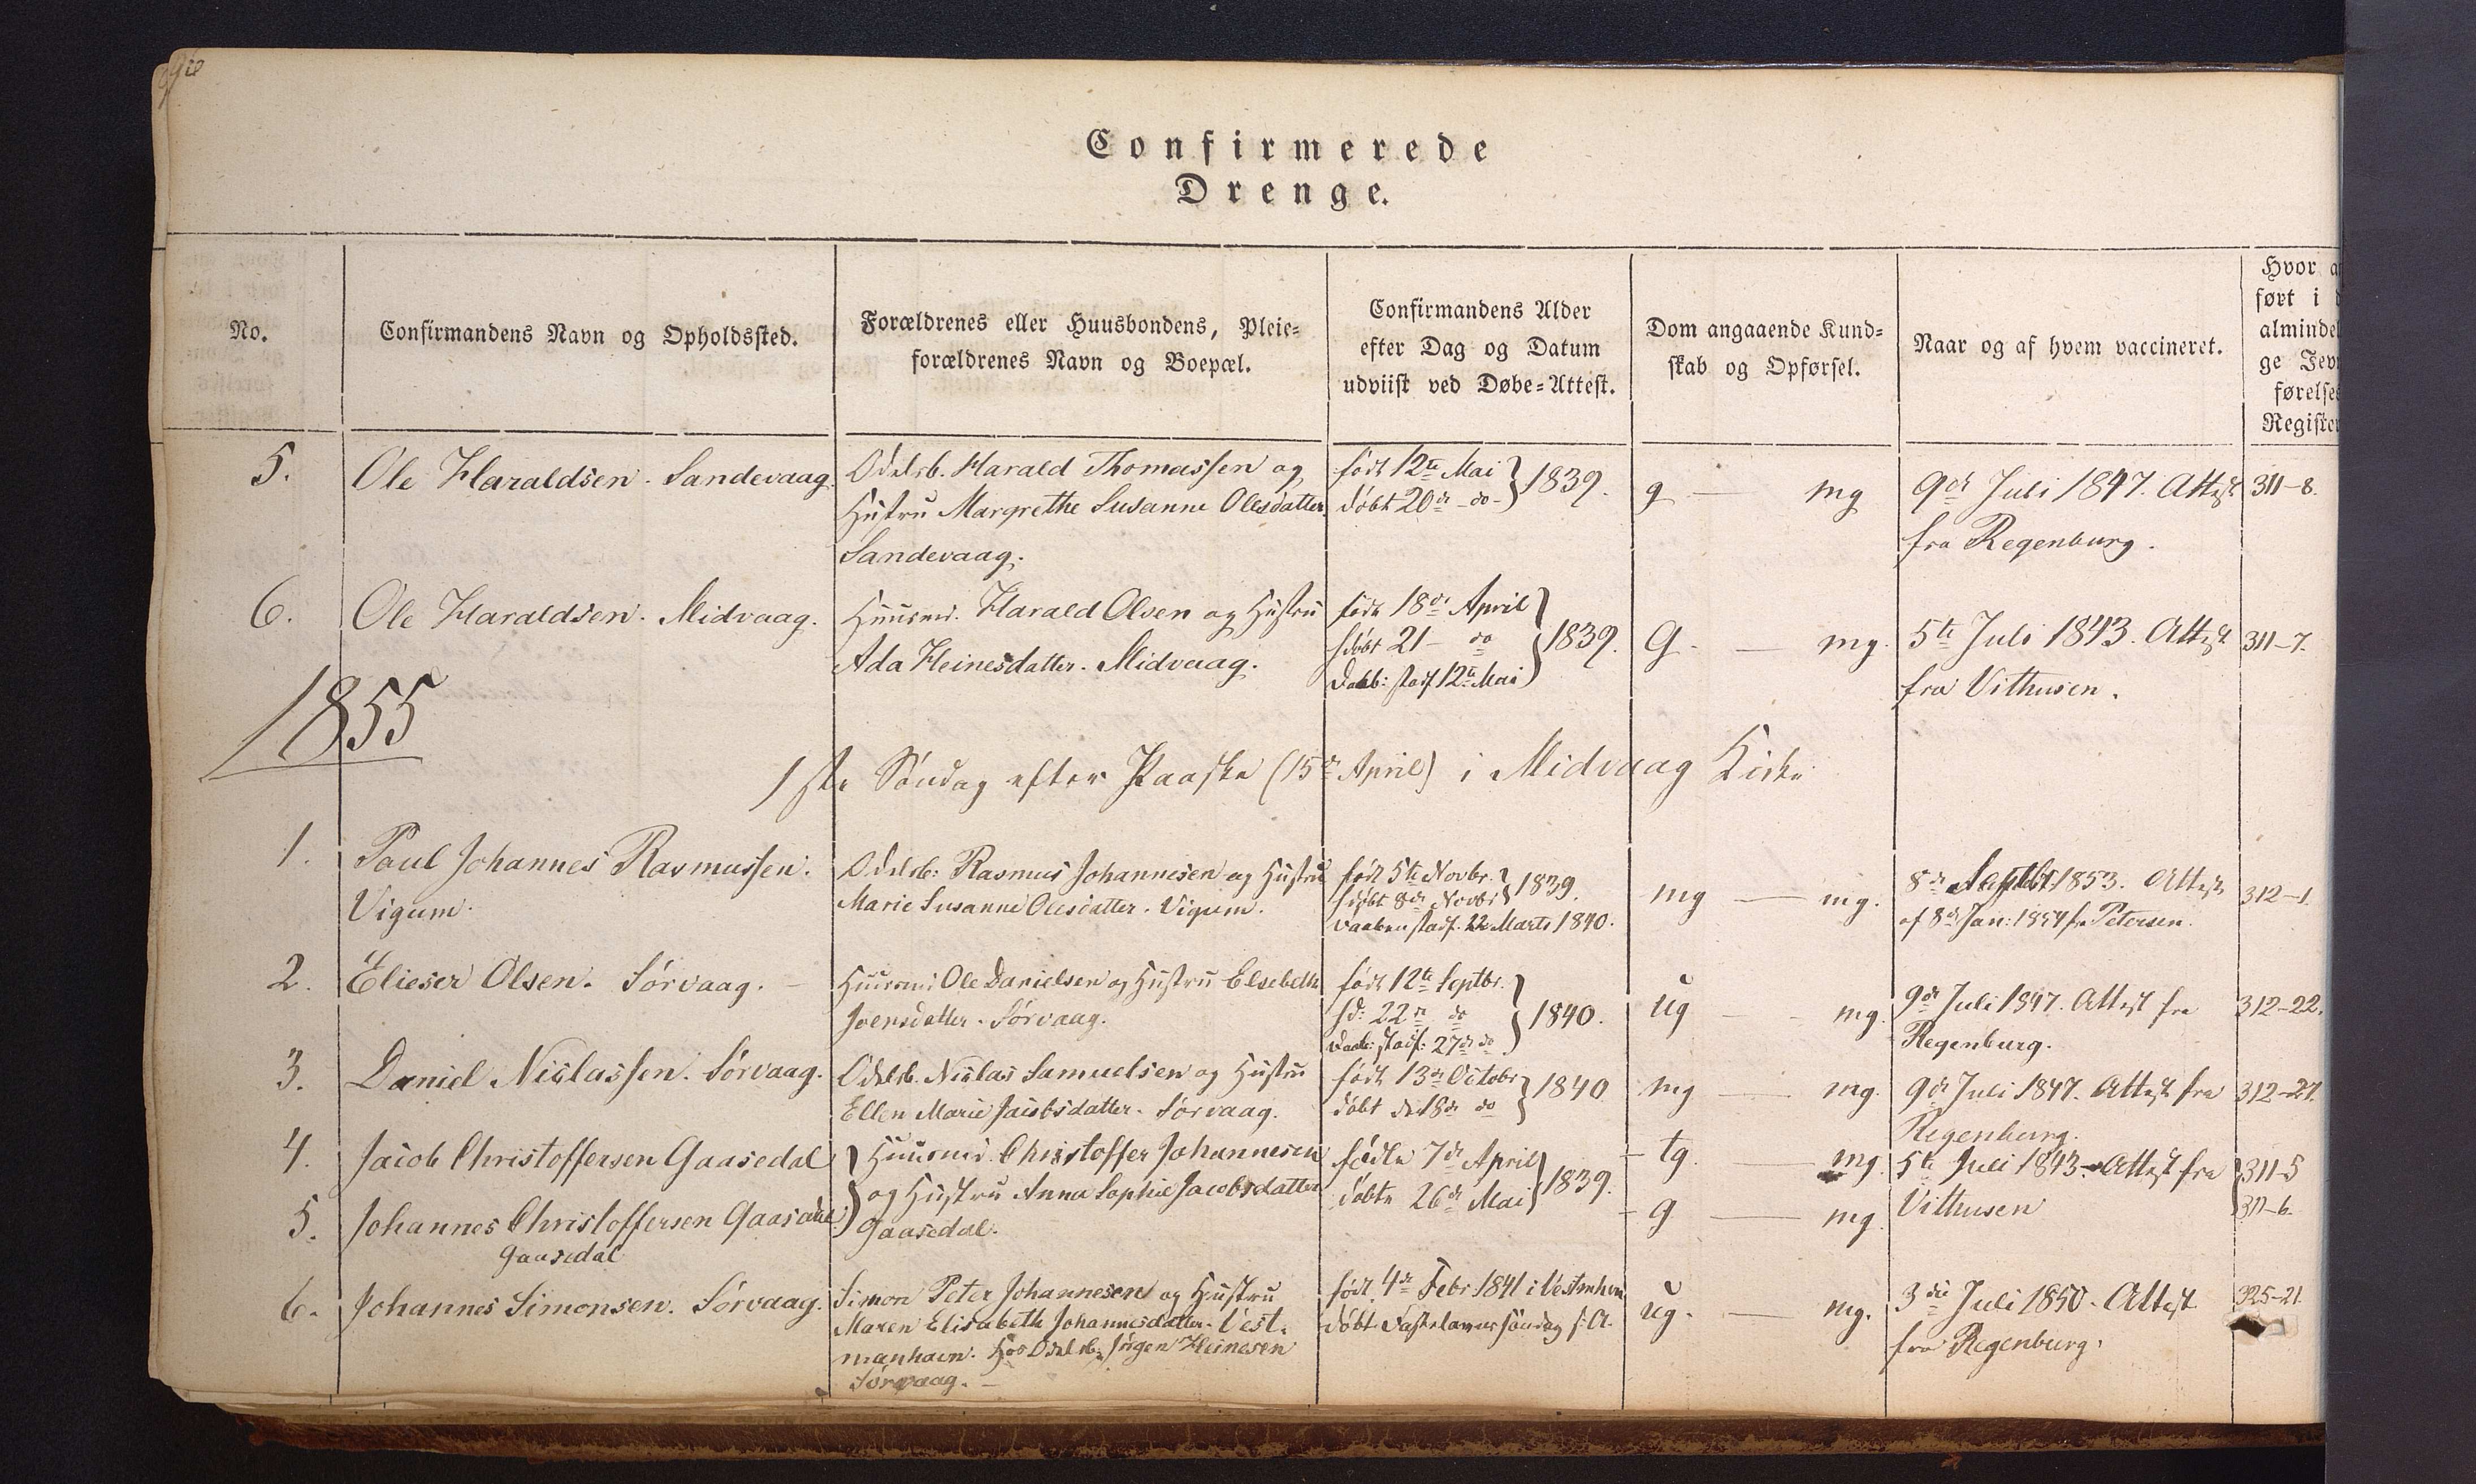 Confirmerede
Drenge.
No.
Confirmandens Navn og Opholdssted.
Forældrenes eller Huusbondens, Pleie=
forældrenes Navn og Boepæl.
Confirmandens Alder
efter Dag og Datum
udviist ved Døbe=Attest.
Dom angaaende Kund=
skab og Opførsel.
Naar og af hvem vaccineret.
Hvor
ført i
almindel
ge Jev
førelses
Register
5.
Ole Haraldsen. Sandevaag.
Odelsb. Harald Thomassen og
Hustru Margrethe Susanne Olesdatter
Sandevaag.
født 12te Mai
døbt 20de do
1839.
g — mg
9de Juli 1847. Attest
fra Regenburg.
311-8.
6.
Ole Haraldsen. Midvaag.
Huusmd. Harald Olsen og Hustru
Ada Heinesdatter. Midvaag.
født 18de April
hdøbt 21 - do
Daab: stadf 12te Mai
1839.
g. — mg.
5te Juli 1843. Attest
fra Vithusen.
311-7.
1855
1ste Søndag efter Paaske (15de April) i Midvaag Kirke
1.
Poul Johannes Rasmussen.
Vigum.
Odelsb: Rasmus Johannesen og Hustru
Marie Susanne Olesdatter. Vigum.
født 5te Novbr.
hdøbt 8de Novbr
1839.
Daaben stadf. 22 Marts 1840.
mg — mg.
8de Septbr: 1853. Attest
af 8de Jan: 1854 fra Petersen.
312-1.
2.
Elieser Olsen. Sørvaag. -
Huusmd Ole Danielsen og Hustru Elsebeth
Joensdatter. Sørvaag.
født 12te Septbr.
hd: 22de do
Daab: stadf: 27de do
1840.
ug - - mg.
9de Juli 1847. Attest fra
Regenburg.
312-22.
3.
Daniel Niclassen. Sørvaag.
Odelsb. Niclas Samuelsen og Hustru
Ellen Marie Jacobsdatter. Sørvaag.
født 13de Octobr
døbt d. 18de do
1840
mg — mg.
9de Juli 1847. Attest fra
Regenburg.
312-27.
4.
Jacob Christoffersen Gaasedal
Huusmd. Christoffer Johannesen
og Hustru Anna Sophie Jacobsdatter
Gaasedal.
fødte 7de April
døbte 26de Mai
1839.
- tg. — mg.
5te Juli 1843. Attest fra
Vithusen
311-5
5.
Johannes Christoffersen Gaasedal
Gaasedal
- g — mg.
311-6.
6.
Johannes Simonsen. Sørvaag.
Simon Peter Johannesen og Hustru
Maren Elisabeth Johannesdatter. Vest-
manhavn. Hos Odelsb. Jørgen Heinesen
Sørvaag. -
født 4de Febr 1841 i Vestmhvn
døbt Fastelavnssøndag s: A.
ug. — mg.
3die Juli 1850. Attest
fra Regenburg.
325-21.